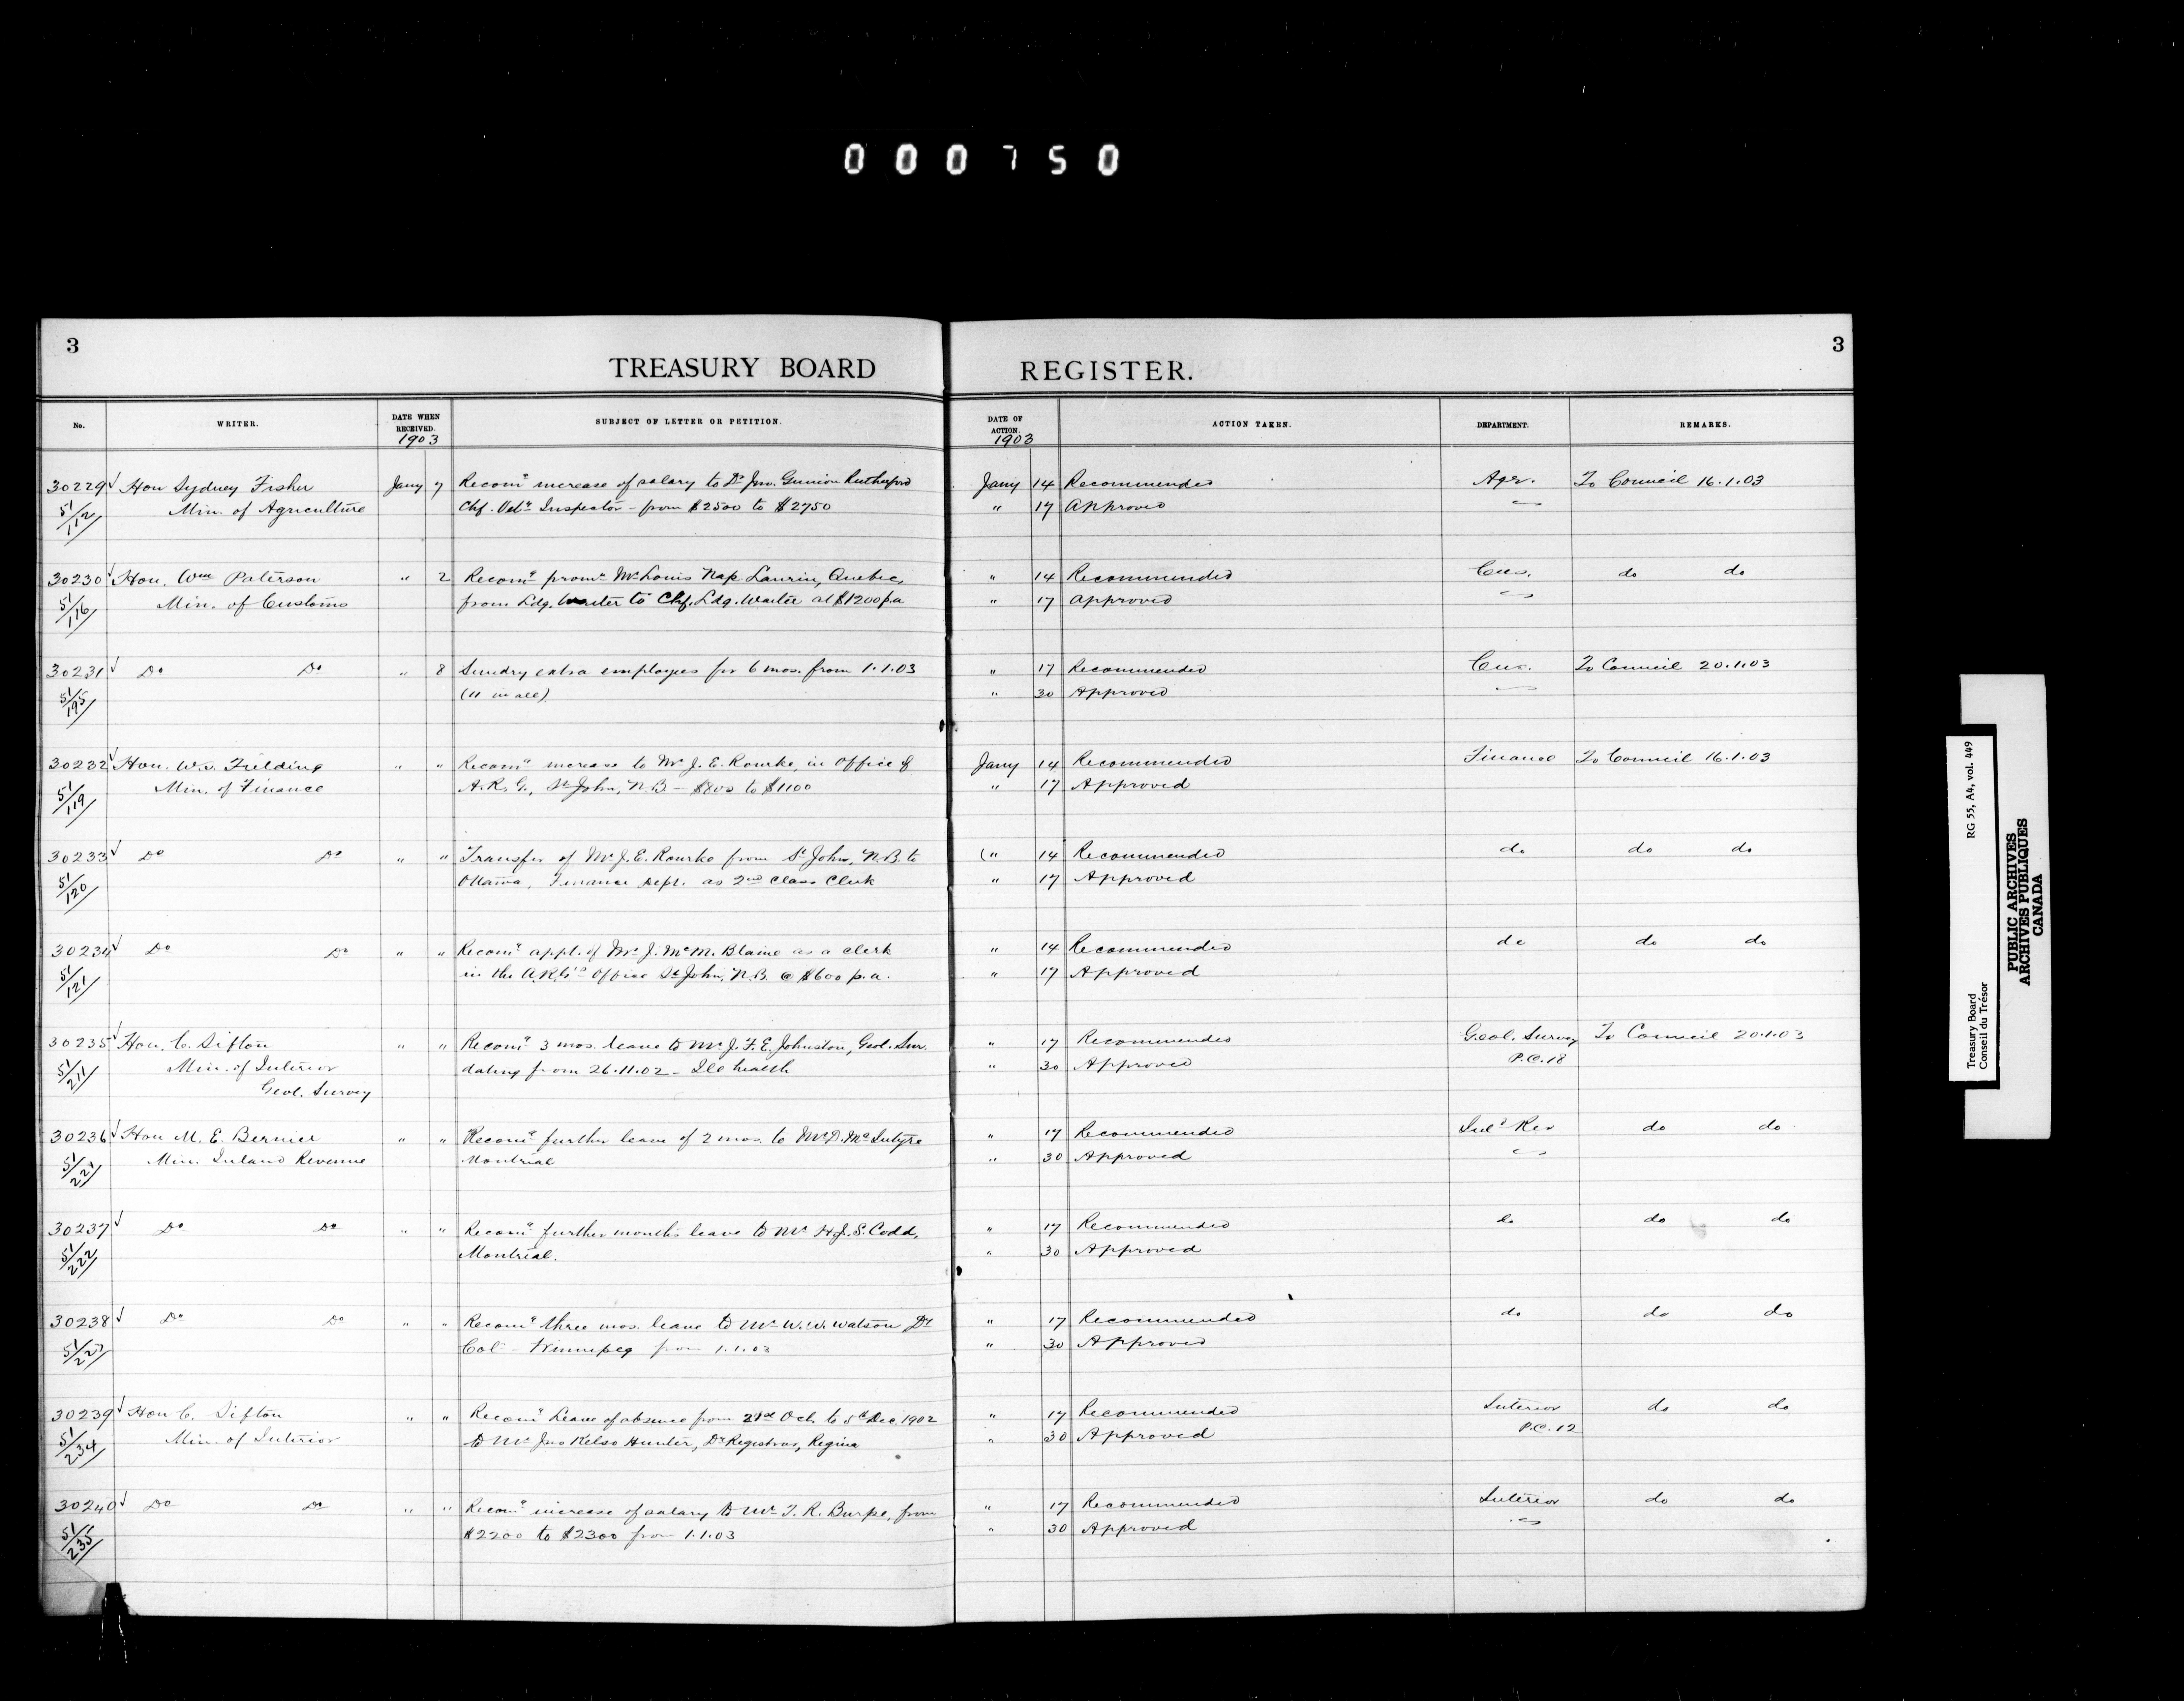 000750
3
3
TREASURY BOARD REGISTER.
No. WRITER. DATE WHEN RECEIVED. SUBJECT OF LETTER OR PETITION. DATE OF ACTION. ACTION TAKEN. DEPARTMENT. REMARKS.
1903 1903
30229 √ Hon Sydney Fisher Jany 7 Recomg increase of salary to Dr Jno. Gunion Rutherford Jany 14 Recommended Agr. To Council 16.1.03
51/112 Min. of Agriculture Chf. Vety Inspector - from $2500 to $2750 " 17 Approved
30230 √ Hon. Wm Paterson " 2 Recomg promn Mr Louis Nap Laurin, Quebec, " 14 Recommended Cus. do do
51/116 Min. of Customs from Ldg. Waiter to Chf. Ldg. Waiter at $1200 p.a " 17 Approved
30231 √ Do Do " 8 Sundry extra employees for 6 mos. from 1.1.03 " 17 Recommended Cus. To Council 20.1.03
51/195 (11 in all) " 30 Approved
30232 √ Hon. W.S. Fielding " " Recomg increase to Mr J. E. Rourke, in Office of Jany 14 Recommended Finance To Council 16.1.03
51/119 Min. of Finance A.R.G., St John, N.B. - $800 to $1100 " 17 Approved
30233 √ Do Do " " Transfer of Mr J. E. Rourke from St John, N.B. to " 14 Recommended do do do
51/120 Ottawa, Finance Dept. as 2nd Class Clerk " 17 Approved
30234 √ Do Do " " Recomg appt. of Mr J. McM. Blaine as a clerk " 14 Recommended do do do
51/121 in the A.R.G's Office St John, N.B. @ $600 p.a. " 17 Approved
30235 √ Hon. C. Sifton " " Recomg 3 mos. leave to Mr J. F. E. Johnston, Geol. Sur. " 17 Recommended Geol. Survey To Council 20.1.03
51/211 Min. of Interior dating from 26.11.02 - Ill health " 30 Approved P.C. 18
Geol. Survey
30236 √ Hon M. E. Bernier " " Recomg further leave of 2 mos. to Mr D. McIntyre " 17 Recommended Inld Rev do do
51/221 Min. Inland Revenue Montreal " 30 Approved
30237 √ Do Do " " Recomg further month's leave to Mr H. J. S. Codd, " 17 Recommended do do do
51/222 Montreal. " 30 Approved
30238 √ Do Do " " Recomg three mos. leave to Mr W. W. Watson Dy " 17 Recommended do do do
Colr - Winnipeg from 1.1.03 " 30 Approved
30239 √ Hon C. Sifton " " Recomg Leave of absence from 21st Oct. to 5th Dec. 1902 " 17 Recommended Interior do do
51/234 Min. of Interior to Mr Jno Kelso Hunter, Dy Registrar, Regina " 30 Approved P.C. 12
30240 √ Do Do " " Recomg increase of salary to Mr T. R. Burpe, from " 17 Recommended Interior do do
51/235 $2200 to $2300 from 1.1.03 " 30 Approved
Treasury Board RG 55, A4, vol. 449
Conseil du Trésor
PUBLIC ARCHIVES
ARCHIVES PUBLIQUES
CANADA